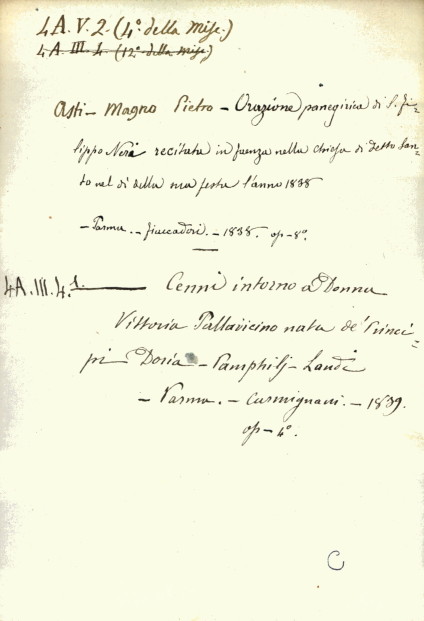 4 A. V. 2. (4° della Misc.)
4 A. III. 4. (12° della Misc.)
Asti - Magno Pietro - Orazione panegirica di S. Fi-
lippo Neri recitata in faenza nella chiesa di detto San-
to nel dì della sua festa l'anno 1838
- Parma. - fiaccadori. - 1838. op - 8°.
4 A. III. 4. 1. Cenni intorno a Donna
Vittoria Pallavicino nata de' Princi-
pi Doria - Pamphilj - Landi
- Parma. - Carmignani. - 1839.
op - 4°.
C